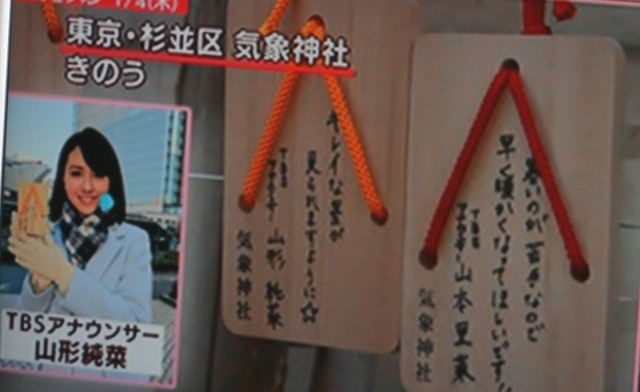 東京・杉並区 気象神社
きのう
TBSアナウンサー
山形純菜
キレイな星が
見られますように☆
TBS
アナウンサー 山形 純菜
気象神社
寒いのが苦手なので
早く暖かくなってほしいです!
TBS
アナウンサー 山本 里菜
気象神社